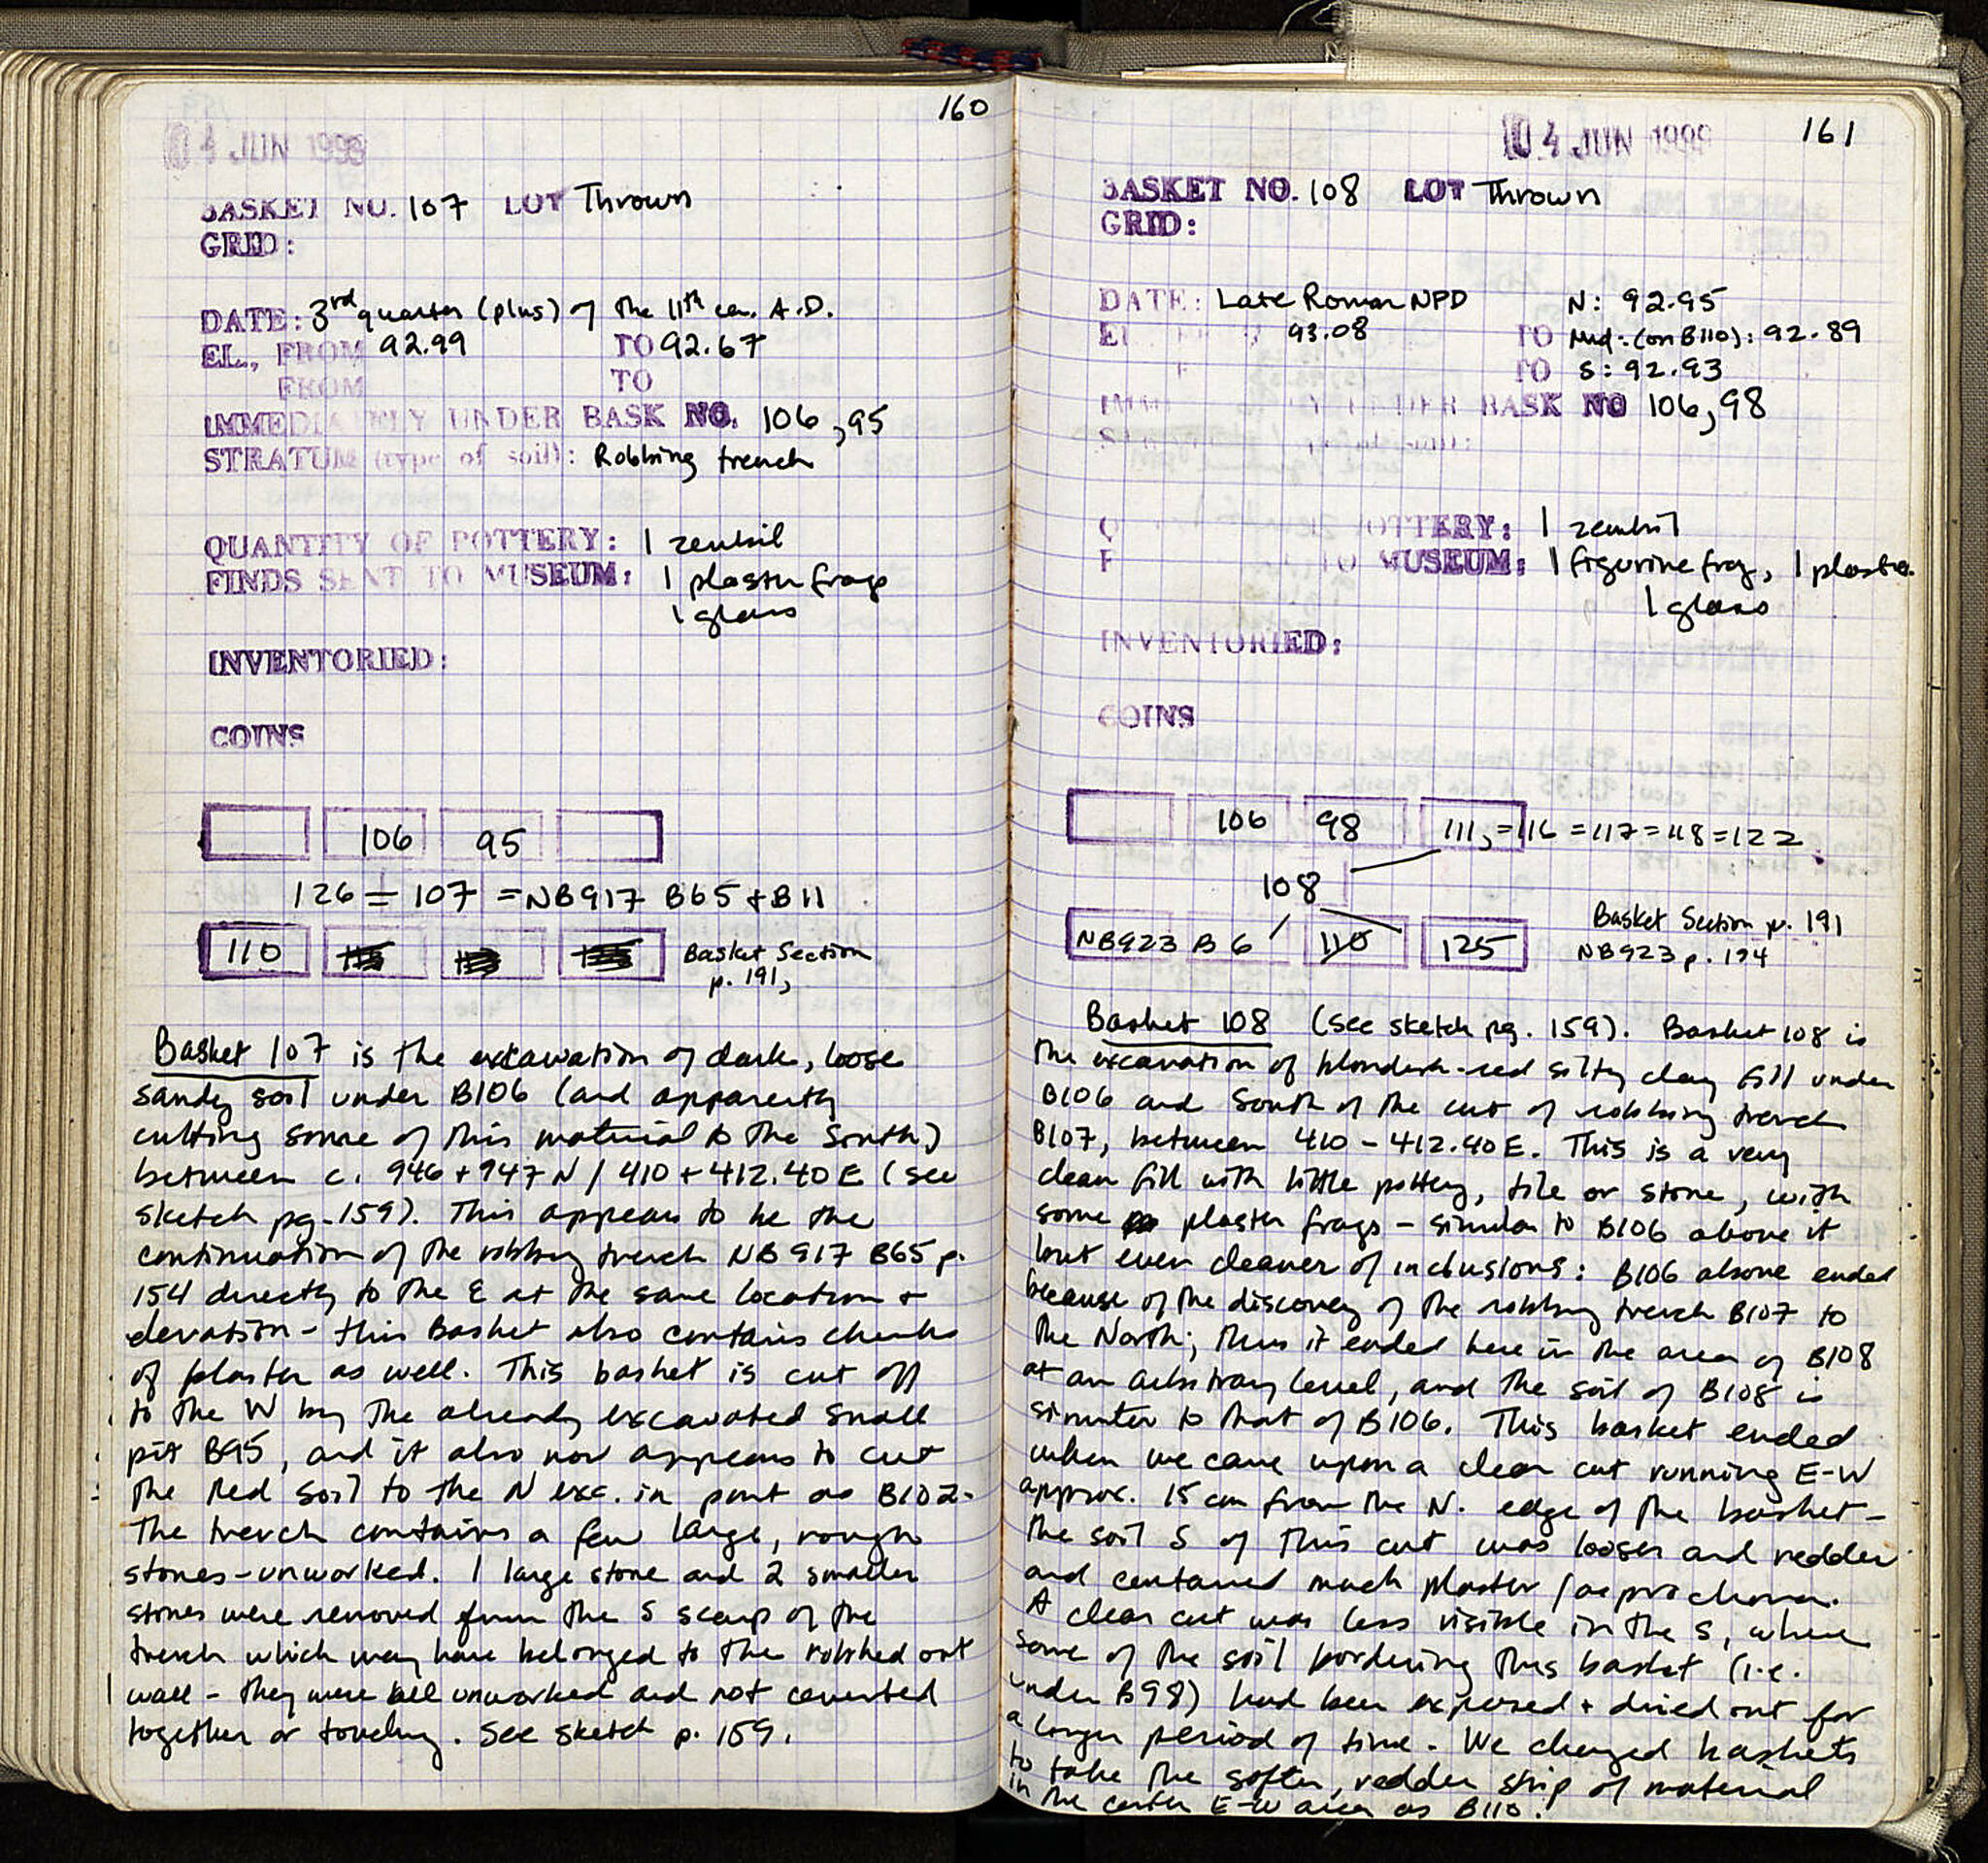 160
04 JUN 1999
BASKET NO. 107 LOT Thrown
GRID:
DATE: 3rd quarter (plus) of the 11th cen. A.D.
EL., FROM 92.99 TO 92.67
FROM TO
IMMEDIATELY UNDER BASK NO. 106, 95
STRATUM (type of soil): Robbing trench
QUANTITY OF POTTERY: 1 zembil
FINDS SENT TO MUSEUM: 1 plaster frag
1 glass
INVENTORIED:
COINS
106 95
126 = 107 = NB917 B65 + B11
110 Basket Section
p. 191,
Basket 107 is the excavation of dark, loose
sandy soil under B106 (and apparently
cutting some of this material to the South)
between c. 946 + 947 N / 410 + 412.40 E (see
sketch pg. 159). This appears to be the
continuation of the robbing trench NB 917 B65 p.
154 directly to the E at the same location +
elevation - this Basket also contains chunks
of plaster as well. This basket is cut off
to the W by the already excavated small
pit B95, and it also now appears to cut
the Red soil to the N exc. in part as B102.
The trench contains a few large, rough
stones - unworked. 1 large stone and 2 smaller
stones were removed from the S scarp of the
trench which may have belonged to the robbed out
wall - they were all unworked and not cemented
together or touching. See sketch p. 159.
161
04 JUN 1999
BASKET NO. 108 LOT Thrown
GRID:
DATE: Late Roman NPD N: 92.95
EL 93.08 TO Mid. (on B110): 92.89
TO S: 92.93
IMM Y UNDER BASK NO 106, 98
S
Q OTTERY: 1 zembil
F TO MUSEUM: 1 figurine frag, 1 plaster
1 glass
INVENTORIED:
COINS
106 98 111, =116 =117 =118 =122
108
NB923 B6 110 125
Basket Section p. 191
NB923 p. 174
Basket 108 (see sketch pg. 159). Basket 108 is
the excavation of blondish-red silty clay fill under
B106 and South of the cut of robbing trench
B107, between 410 - 412.40 E. This is a very
clean fill with little pottery, tile or stone, with
some plaster frags - similar to B106 above it
but even cleaner of inclusions: B106 above ended
because of the discovery of the robbing trench B107 to
the North; thus it ended here in the area of B108
at an arbitrary level, and the soil of B108 is
similar to that of B106. This basket ended
when we came upon a clear cut running E-W
approx. 15 cm from the N. edge of the basket -
the soil S of this cut was looser and redder
and contained much plaster
A clear cut was less visible in the S, where
some of the soil bordering this basket (i.e.
under B98) had been exposed + dried out for
a longer period of time. We changed baskets
to take the softer, redder strip of material
in the center E-W area as B110.